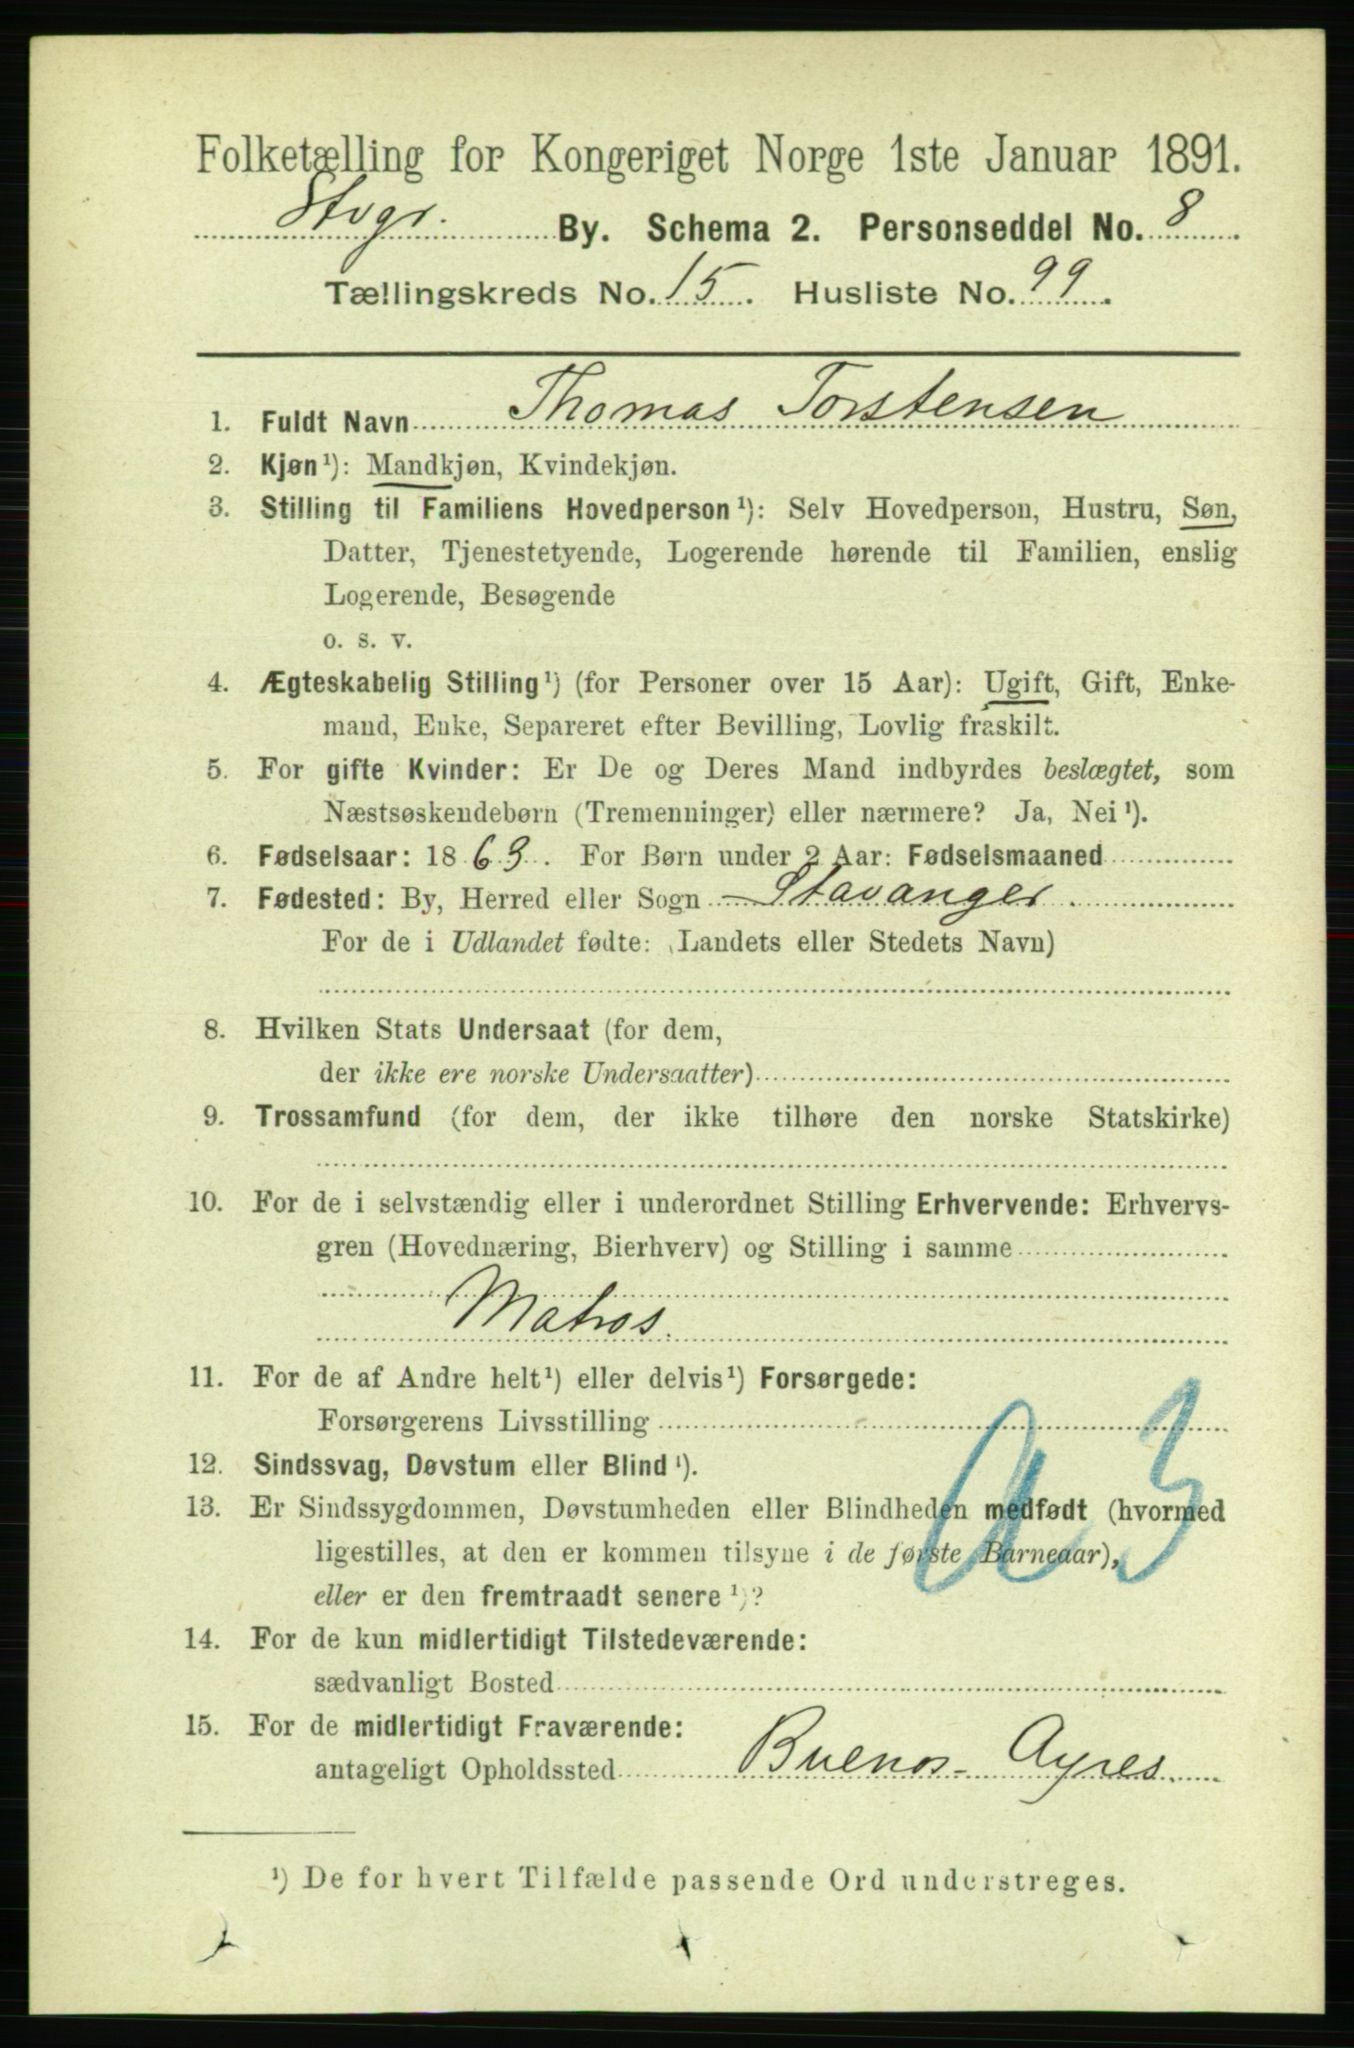 Folketælling for Kongeriget Norge 1ste Januar 1891.
Stvgr. By. Schema 2. Personseddel No. 8
Tællingskreds No. 15. Husliste No. 99.
1. Fuldt Navn Thomas Torstensen
2. Kjøn¹): Mandkjøn, Kvindekjøn.
3. Stilling til Familiens Hovedperson¹): Selv Hovedperson, Hustru, Søn,
Datter, Tjenestetyende, Logerende hørende til Familien, enslig
Logerende, Besøgende
o. s. v.
4. Ægteskabelig Stilling¹) (for Personer over 15 Aar): Ugift, Gift, Enke-
mand, Enke, Separeret efter Bevilling, Lovlig fraskilt.
5. For gifte Kvinder: Er De og Deres Mand indbyrdes beslægtet, som
Næstsøskendebørn (Tremenninger) eller nærmere? Ja, Nei¹).
6. Fødselsaar: 1863. For Børn under 2 Aar: Fødselsmaaned
7. Fødested: By, Herred eller Sogn Stavanger.
For de i Udlandet fødte: (Landets eller Stedets Navn)
8. Hvilken Stats Undersaat (for dem,
der ikke ere norske Undersaatter)
9. Trossamfund (for dem, der ikke tilhøre den norske Statskirke)
10. For de i selvstændig eller i underordnet Stilling Erhvervende: Erhvervs-
gren (Hovednæring, Bierhverv) og Stilling i samme
Matros.
11. For de af Andre helt¹) eller delvis¹) Forsørgede:
Forsørgerens Livsstilling
12. Sindssvag, Døvstum eller Blind¹).
13. Er Sindssygdommen, Døvstumheden eller Blindheden medfødt (hvormed
ligestilles, at den er kommen tilsyne i de første Barneaar),
eller er den fremtraadt senere¹)?
14. For de kun midlertidigt Tilstedeværende:
sædvanligt Bosted
15. For de midlertidigt Fraværende:
antageligt Opholdssted Buenos-Ayres.
¹) De for hvert Tilfælde passende Ord understreges.